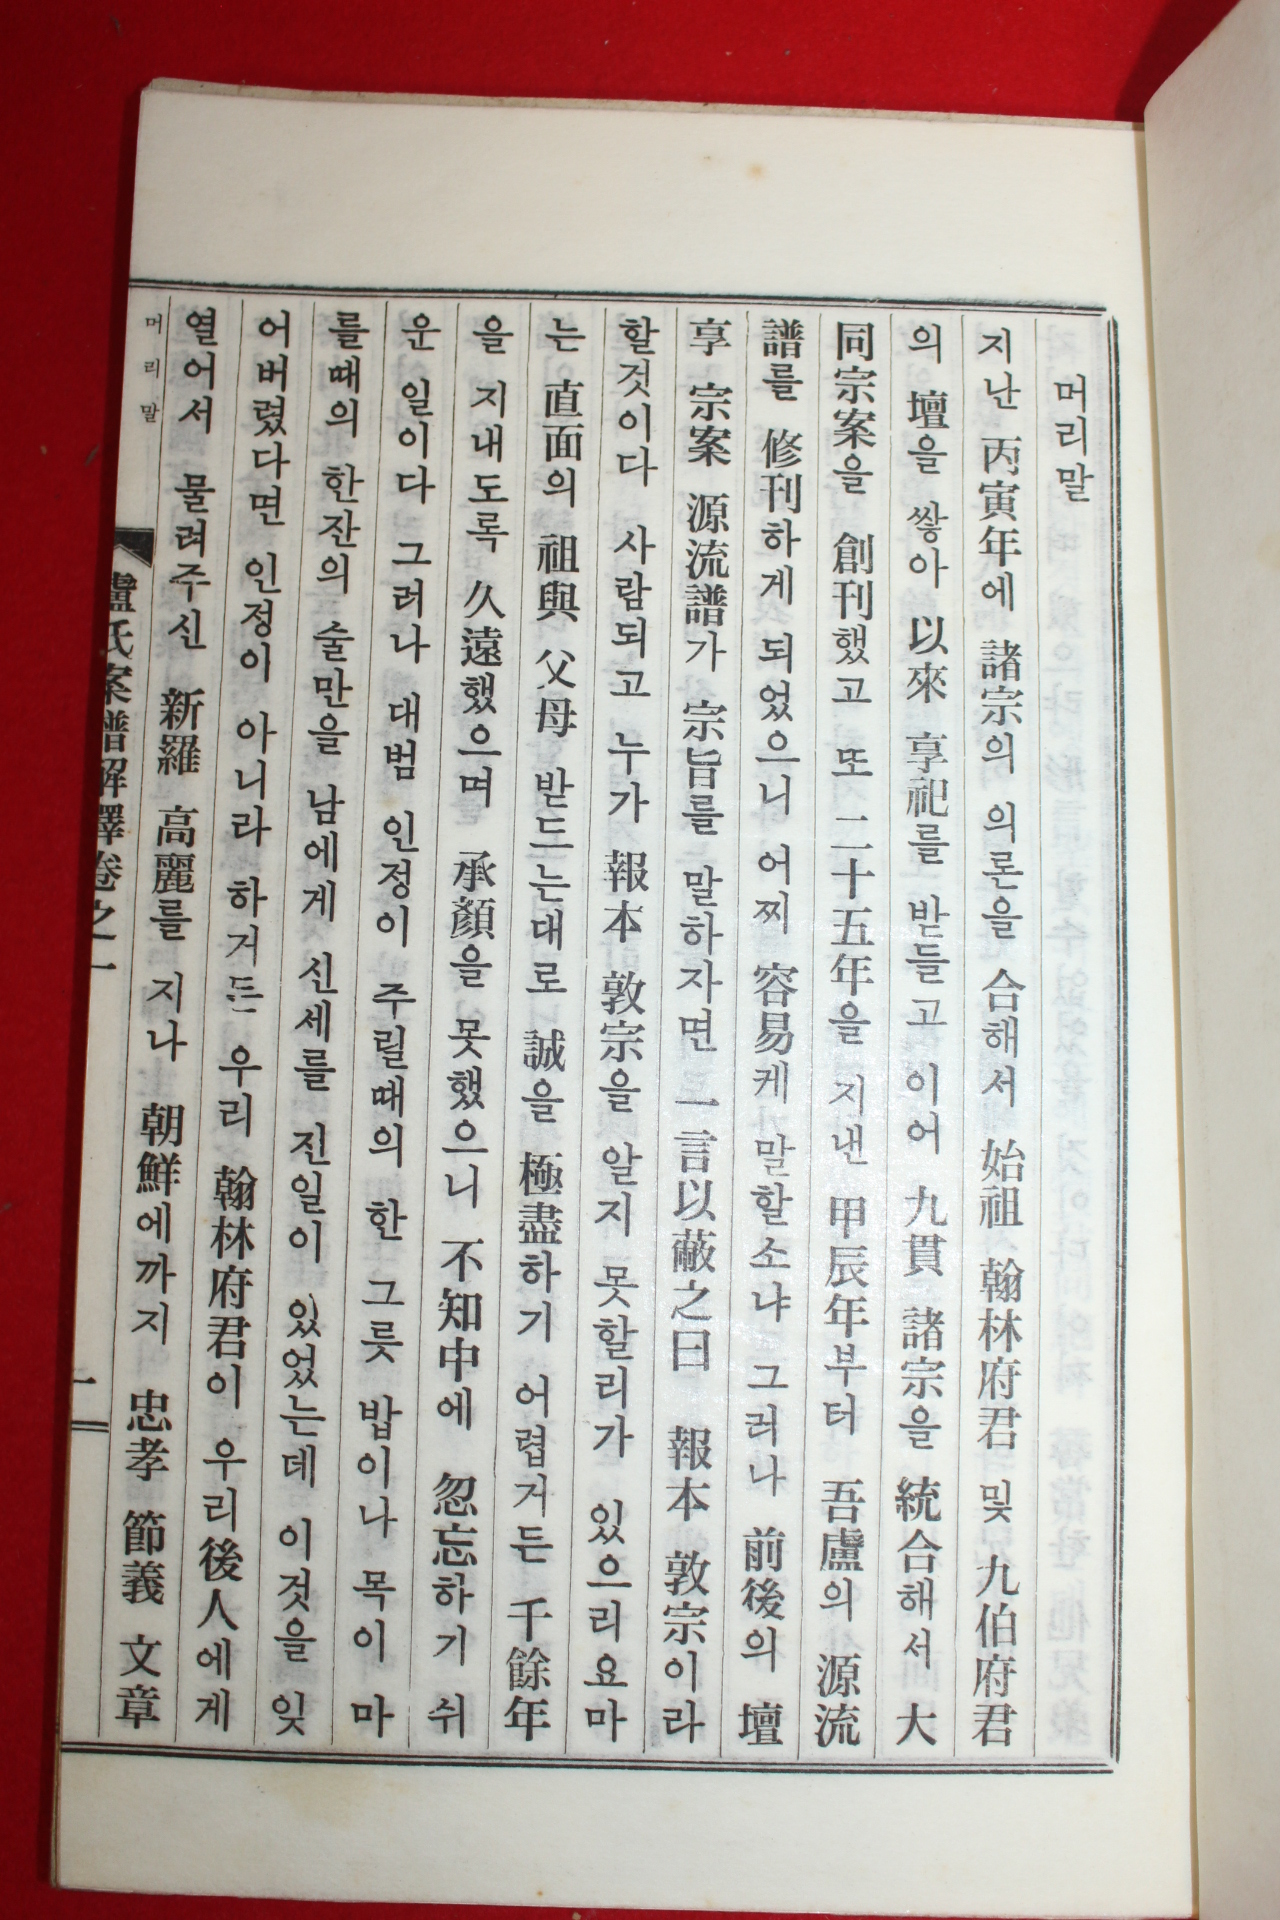 머리말
지난 丙寅年에 諸宗의 의론을 合해서 始祖 翰林府君 및 九伯府君
의 壇을 쌓아 以來 享祀를 받들고 이어 九貫 諸宗을 統合해서 大
同宗案을 創刊했고 또 二十五年을 지낸 甲辰年부터 吾盧의 源流
譜를 修刊하게 되었으니 어찌 容易케 말할소냐 그러나 前後의 壇
享 宗案 源流譜가 宗旨를 말하자면 一言以蔽之曰 報本 敦宗이라
할것이다 사람되고 누가 報本 敦宗을 알지 못할리가 있으리요마
는 直面의 祖與 父母 받드는대로 誠을 極盡하기 어렵거든 千餘年
을 지내도록 久遠했으며 承顏을 못했으니 不知中에 忽忘하기 쉬
운 일이다 그러나 대범 인정이 주릴때의 한 그릇 밥이나 목이 마
를때의 한잔의 술만을 남에게 신세를 진일이 있었는데 이것을 잊
어버렸다면 인정이 아니라 하거든 우리 翰林府君이 우리後人에게
열어서 물려주신 新羅 高麗를 지나 朝鮮에까지 忠孝 節義 文章
머리말
盧氏案譜解譯卷之一
一